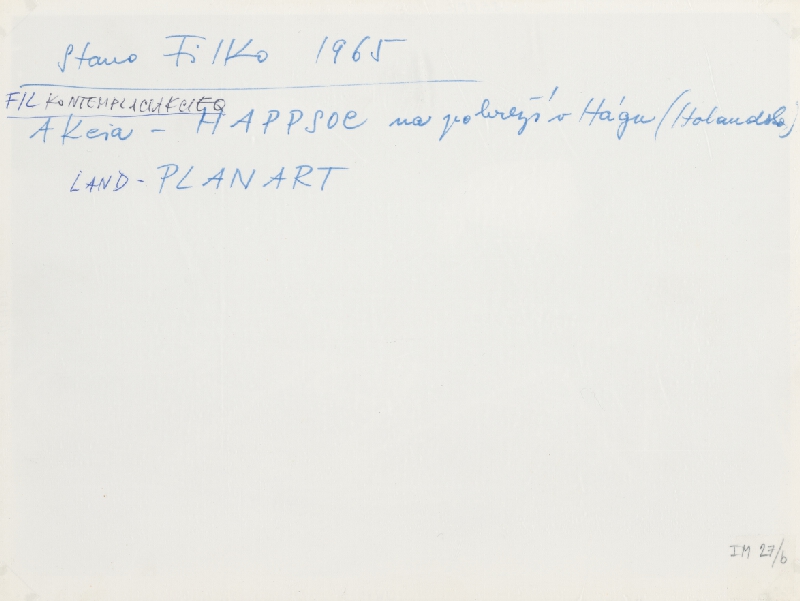 Stano Filko 1965
FILKONTEMPLACIAKCIEQ
AKcia - HAPPSOC na pobreží v Hágu (Holandsko)
LAND - PLANART
IM 27/b